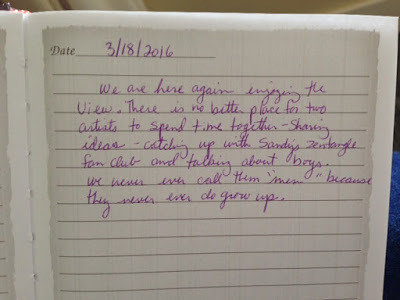 Date 3/18/2016
We are here again enjoying the
View. There is no better place for two
artists to spend time together - Sharing
ideas - catching up with Sandy's zentangle
fan club and talking about boys.
We never ever call them "men" because
they never ever do grow up.